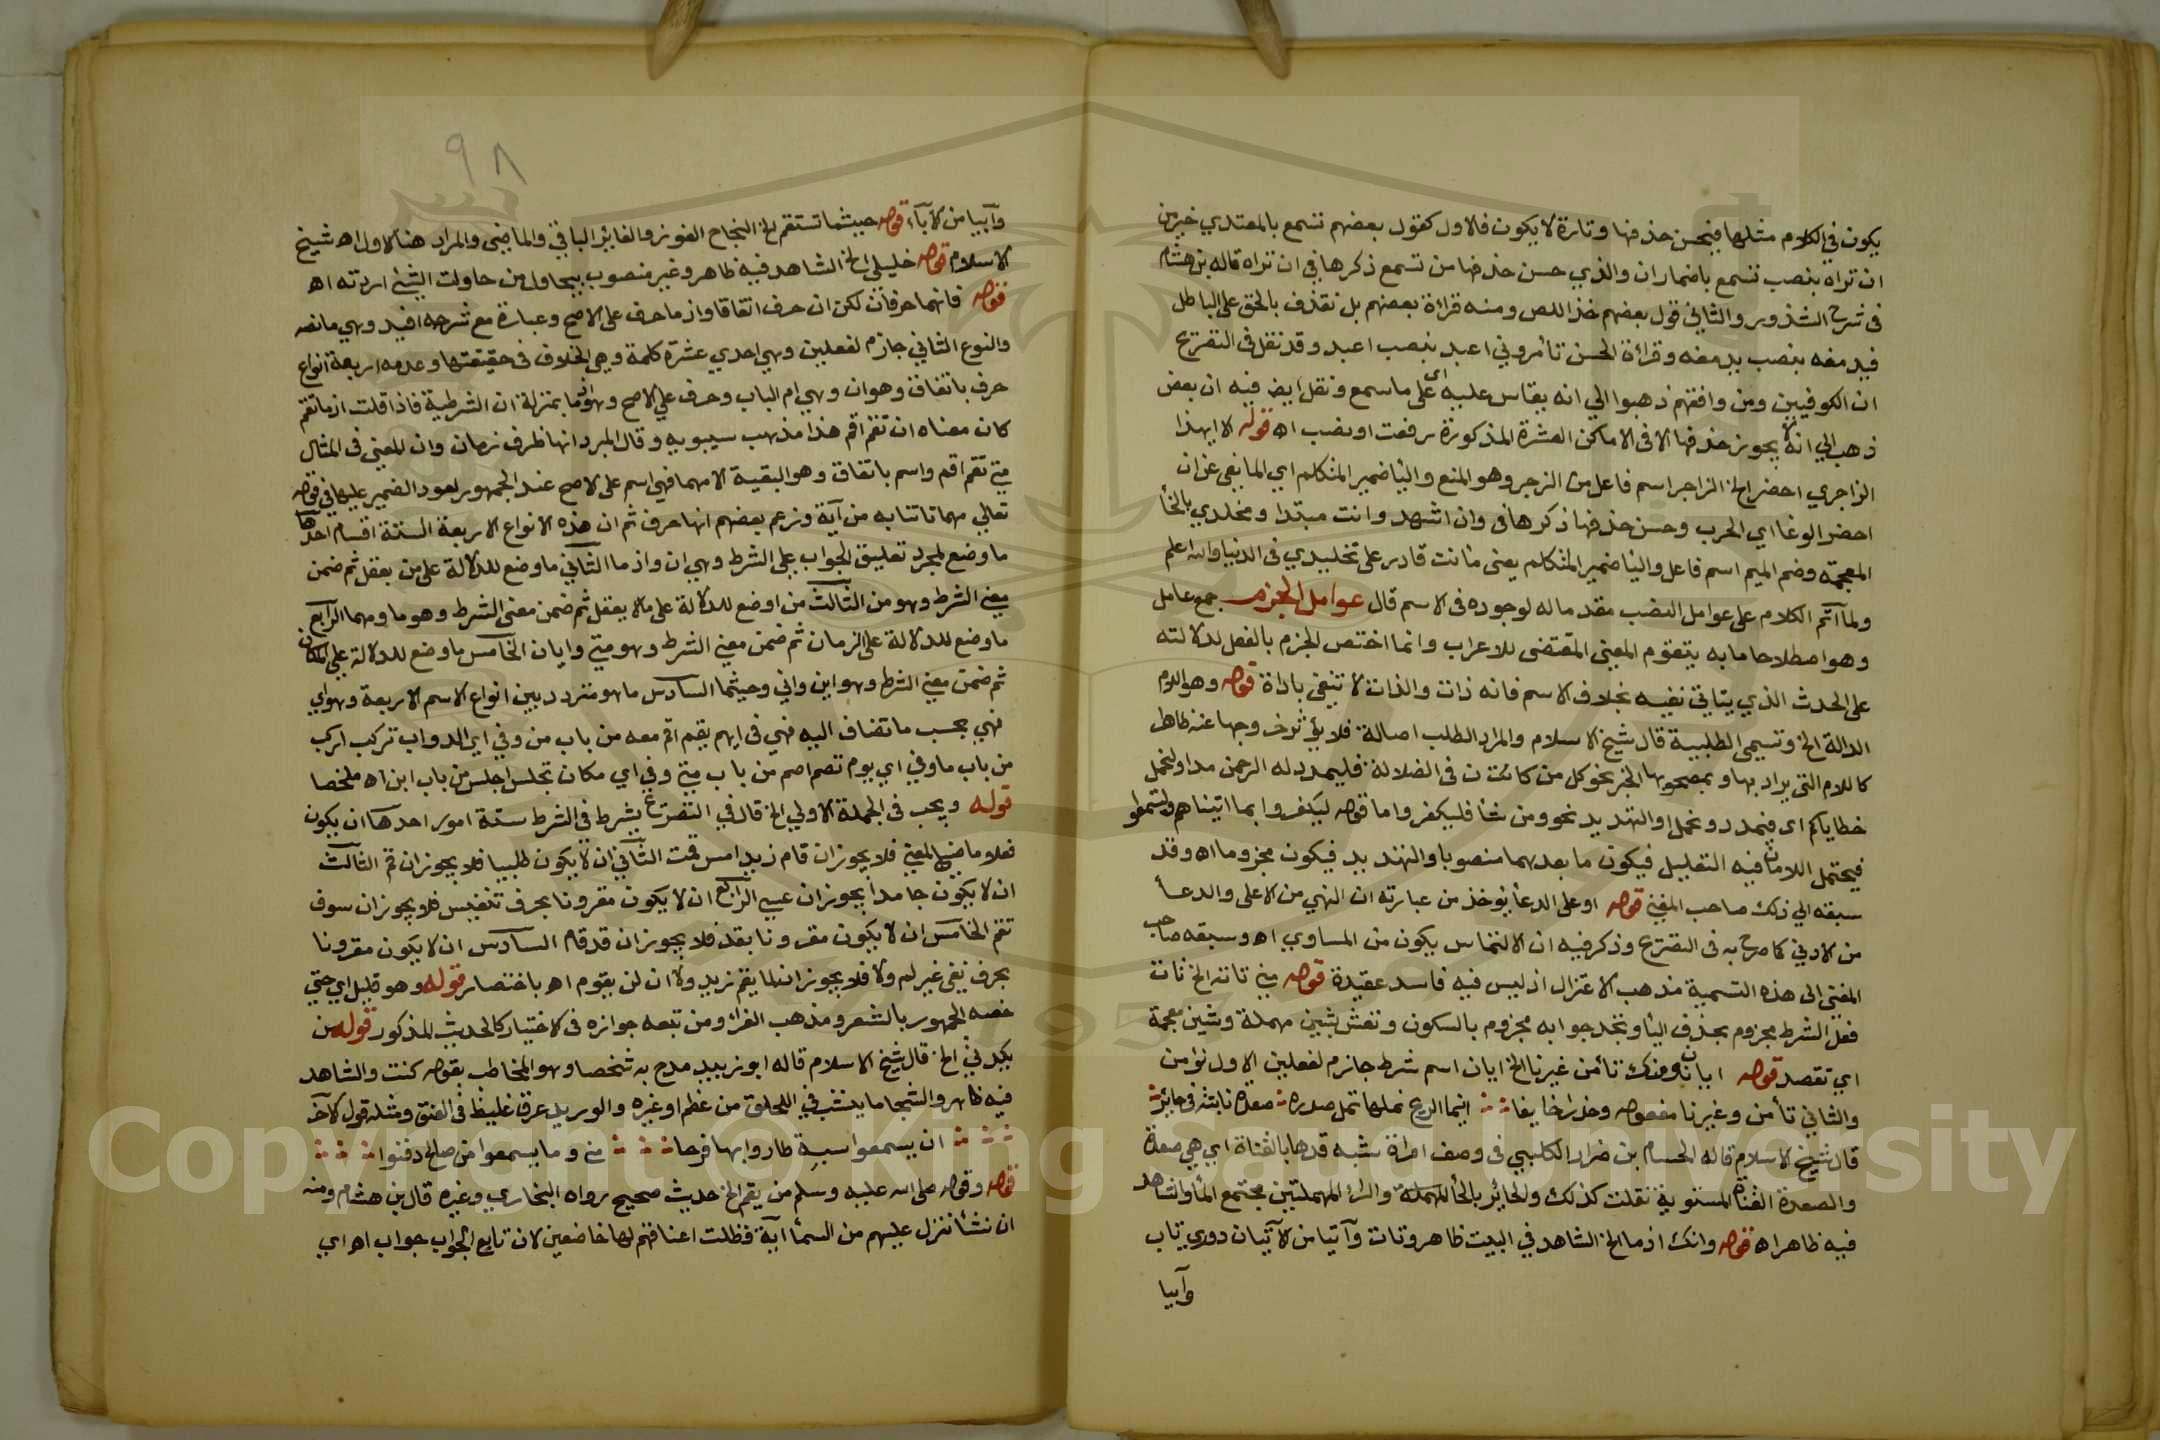 يكون في الكلام مثلها فيحسن حذفها وتارة لا يكون فالاول كقول بعضهم تسمع بالمعيدي خير من
ان تراه بنصب تسمع باضمار ان والذي حسن حذفها من تسمع ذكرها في ان تراه قاله بن هشام
في شرح الشذور والثاني قول بعضهم خذ اللص ومنه قراءة بعضهم بل نقذف بالحق على الباطل
فيدمغه بنصب يدمغه وقراءة الحسن تأمروني اعبد بنصب اعبد وقد نقل في التصريح
ان الكوفيين ومن وافقهم ذهبوا الي انه يقاس عليه اي على ما سمع ونقل ايض فيه ان بعض
ذهب الي انه لا يجوز حذفها الا في الاماكن العشرة المذكورة رفعت او نصب اه قوله الا ايهذا
الزاجري احضر الخ الزاجر اسم فاعل من الزجر وهو المنع واليا ضمير المتكلم اي المانعي عن ان
احضر الوغا اي الحرب وحسن حذفها ذكرها في وان اشهد وانت مبتدا ومخلدي بالخأ
المعجمة وضم الميم اسم فاعل واليا ضمير المتكلم يعني ما انت قادر على تخليدي في الدنيا والله اعلم
ولما اتم الكلام على عوامل النصب مقدما له لوجوده في الاسم قال عوامل الجزم جمع عامل
وهو اصطلاحا ما به يتقوم المعنى المقتضى للاعراب وانما اختص الجزم بالفعل لدلالته
على الحدث الذي يتاتي نفيه بخلاف الاسم فانه ذات والذات لا تنتفي باداة قوله وهو اللام
الدالة الخ وتسمى الطلبية قال شيخ الاسلام والمراد الطلب اصالة فلا يؤثر خروجها عنه ظاهل
كاللام التي يراد بها وبمصحوبها الخبر نحو كل من كانت ن في الضلالة فليمدد له الرحمن مدا ولنحمل
خطاياكم اي فنمدد ونحمل او التهديد نحو ومن شأ فليكفر واما قوله ليكفروا بما اتيناهم وليتمتعوا
فيحتمل اللامان فيه التعليل فيكون ما بعدهما منصوبا والتهديد فيكون مجزوما اه وقد
سبقه الي ذلك صاحب المغني قوله او على الدعأ يؤخذ من عبارته ان النهي من الاعلى والدعـأ
من الادني كما صرح به في التصريح وذكر فيه ان الالتماس يكون من المساوي اه وسبقه صاحب
المغني الى هذه التسمية مذهب الاعتزال اذ ليس فيه فاسد عقيدة قوله متي تاته الخ تات
فعل الشرط مجزوم بحذف اليا وتجد جوابه مجزوم بالسكون وتعش بتبين مهملة وشين معجمة
اي تقصد قوله ايان نؤمنك تأمن غيرنا الخ ايان اسم شرط جازم لفعلين الاول نؤمن
والثاني تأمن وغيرنا مفعوله وحذرا خايفا اينما الريح تميلها تمل صدره صعدة نابتة في حائر
قال شيخ الاسلام قاله الحسام بن ضرار الكلبي في وصف امراة شبه قدها بالقناة اي هي صعدة
والصعدة القناة المستوية نقلت كذلك والحائر بالحأ المهملة والرأ المهملتين مجتمع المأ والشاهد
فيه ظاهر اه قوله وانك اذ ما الخ الشاهد في البيت ظاهر وتات وآتيا من الاتيان دوري تاب
وآبيا
٩٨
وآبيا من الابآء قوله حيثما تستقم الخ النجاح الفوز والغابر الباقي والماضي والمراد هنا الاول اه شيخ
الاسلام قوله خليلي الخ الشاهد فيه ظاهر وغير منصوب بيحاول من حاولت الشئ اردته اه
قوله فانهما حرفان لكن ان حرف اتفاقا واذ ما حرف على الاصح وعبارة مع شرحه افيد وهي ما نصه
والنوع الثاني جازم لفعلين وهي احدي عشرة كلمة وهي الخلاف في حقيقتها وعدمه اربعة انواع
حرف باتفاق وهو ان وهي ام الباب وحرف علي الاصح وهو اذ ما بمنزلة ان الشرطية فاذا قلت اذ ما تقم
كان معناه ان تقم اقم هذا مذهب سيبويه وقال المبرد انها ظرف زمان وان المعني في المثال
متي تقم اقم واسم باتفاق وهو البقية الا مهما فهي اسم على الاصح عند الجمهور لعود الضمير عليها في قوله
تعالي مهما تاتنا به من آية وزعم بعضهم انها حرف ثم ان هذه الانواع الاربعة الستة اقسام احدها
ما وضع لمجرد تعليق الجواب على الشرط وهي ان واذ ما الثاني ما وضع للدلالة على من يعقل ثم ضمن
معني الشرط وهو من الثالث من اوضع للدلالة على ما لا يعقل ثم ضمن معني الشرط وهو ما ومهما الرابع
ما وضع للدلالة على الزمان ثم ضمن معني الشرط وهو متي وايان الخامس ما وضع للدلالة على المكان
ثم ضمن معني الشرط وهو اين واني وحيثما السادس ما هو متردد بين انواع الاسم الاربعة وهو اي
فهي بحسب ما تضاف اليه فهي في ايهم يقم اقم معه من باب من وفي اي الدواب تركب اركب
من باب ما وفي اي يوم تصم اصم من باب متي وفي اي مكان تجلس اجلس من باب اين اه ملخصا
قوله ويجب في الجملة الاولي الخ قال في التصريح يشرط في الشرط ستة امور احدها ان يكون
فعلا ماضي المعني فلا يجوز ان قام زيد امس قمت الثاني ان لا يكون طلبيا فلا يجوز ان قم الثالث
ان لا يكون جامدا يجوز ان عسي الرابع ان لا يكون مقرونا بحرف تنفيس فلا يجوز ان سوف
تقم الخامس ان لا يكون مقرونا بقد فلا يجوز ان قد قام السادس ان لا يكون مقرونا
بحرف نفي غير لم ولا فلا يجوز ان لما يقم زيد ولا ان لن يقوم اه باختصار قوله وهو قليل اي حتي
خصه الجمهور بالشعر ومذهب الفرأ ومن تبعه جوازه في الاختيار كالحديث المذكور قوله من
يكدني الخ قال شيخ الاسلام قاله ابو زبيد مدح به شخصا وهو المخاطب بقوله كنت والشاهد
فيه ظاهر والشجا ما ينشب في الحلق من عظم او غيره والوريد عرق غليظ في العنق ومثله قول الآخر
ان يسمعوا سبة طاروا بها فرحا مني وما يسمعوا من صالح دفنوا
قوله وقوله صلى الله عليه وسلم من يقم الخ حديث صحيح رواه البخاري وغيره قال بن هشام ومنه
ان نشأ ننزل عليهم من السمأ آية فظلت اعناقهم لها خاضعين لان تابع الجواب جواب اه اي
Copyright © King Saud University
1957